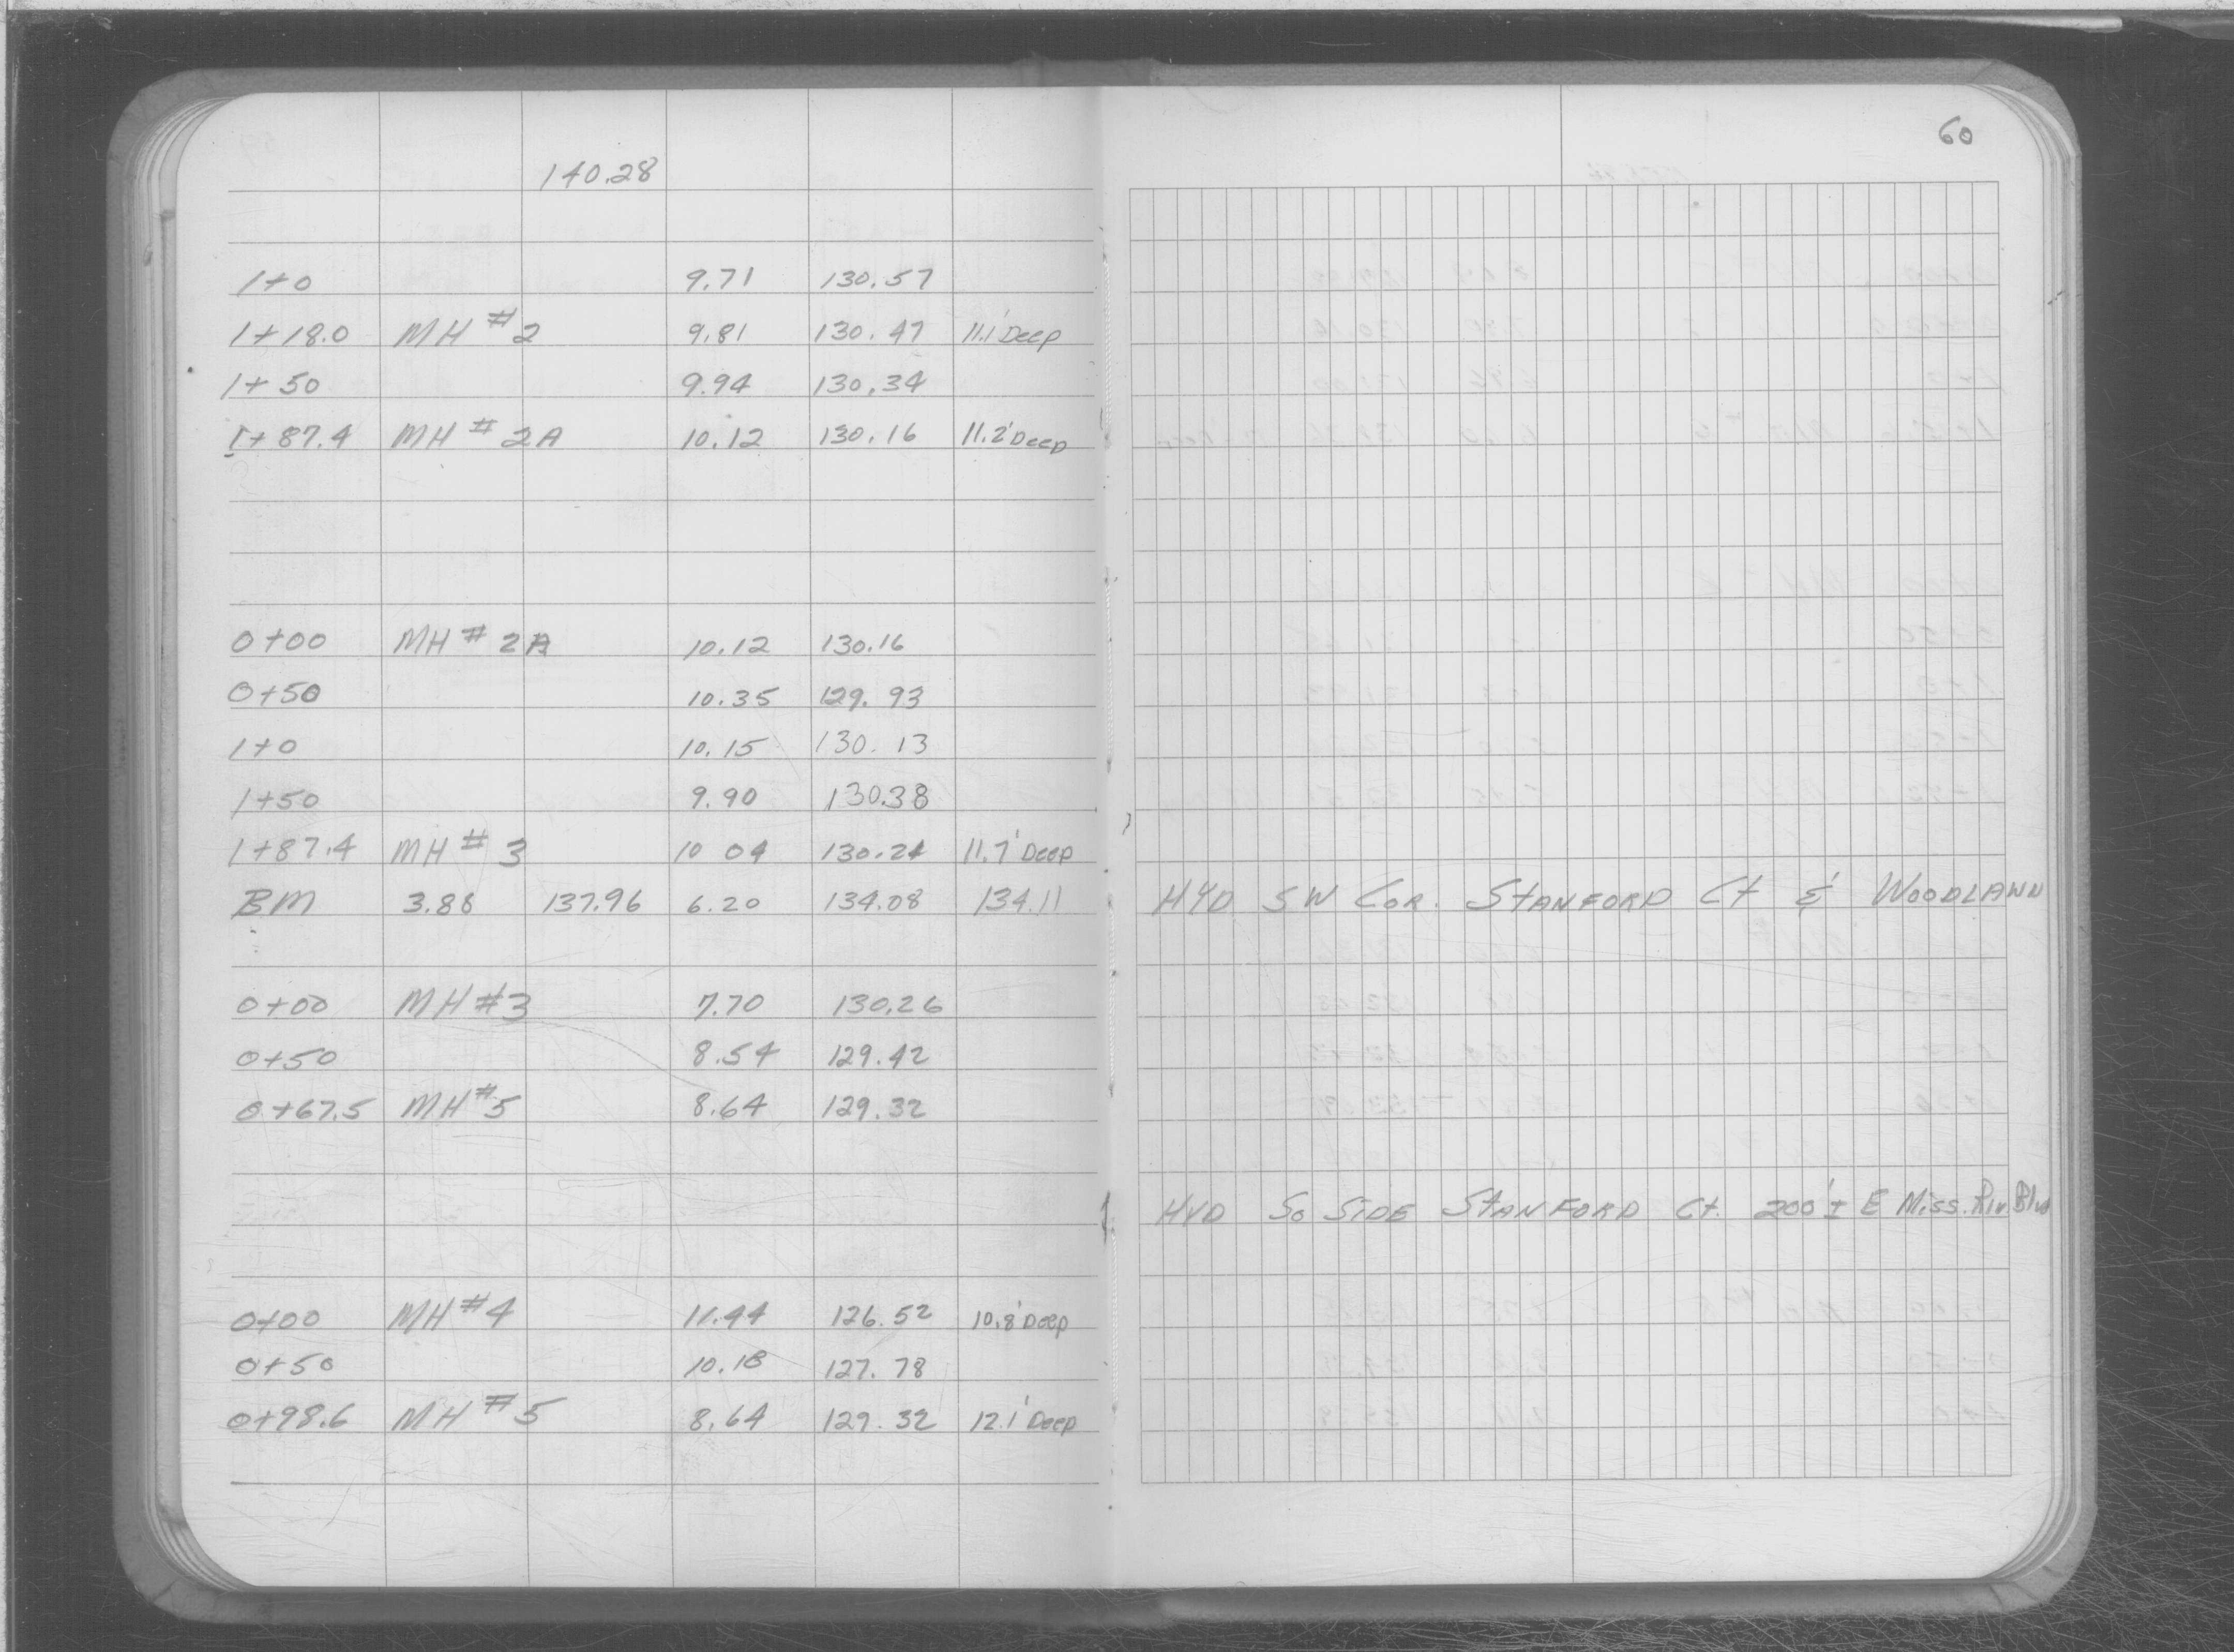 60
140.28
1+0 9.71 130.57
1+18.0 MH #2 9.81 130.47 11.1' Deep
1+50 9.94 130.34
1+87.4 MH # 2A 10.12 130.16 11.2' Deep
0+00 MH # 2A 10.12 130.16
0+50 10.35 129.93
1+0 10.15 130.13
1+50 9.90 130.38
1+87.4 MH # 3 10 04 130.24 11.7' Deep
BM 3.88 137.96 6.20 134.08 134.11 HYD SW COR. STANFORD Ct & WOODLAWN
0+00 MH #3 7.70 130.26
0+50 8.54 129.42
0+67.5 MH #5 8.64 129.32
HYD So SIDE STANFORD Ct. 200'± E Miss. Riv Blvd
0+00 MH #4 11.44 126.52 10.8' Deep
0+50 10.18 127.78
0+98.6 MH #5 8.64 129.32 12.1' Deep